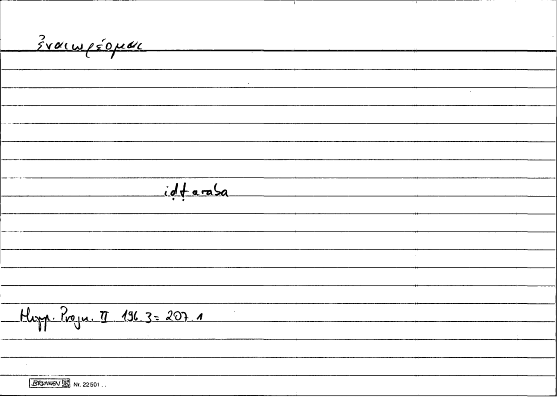 ἐναιωρέομαι
iḍṭaraba
Hipp. Progn. II 196.3 = 207.1
BRUNNEN Nr. 22501